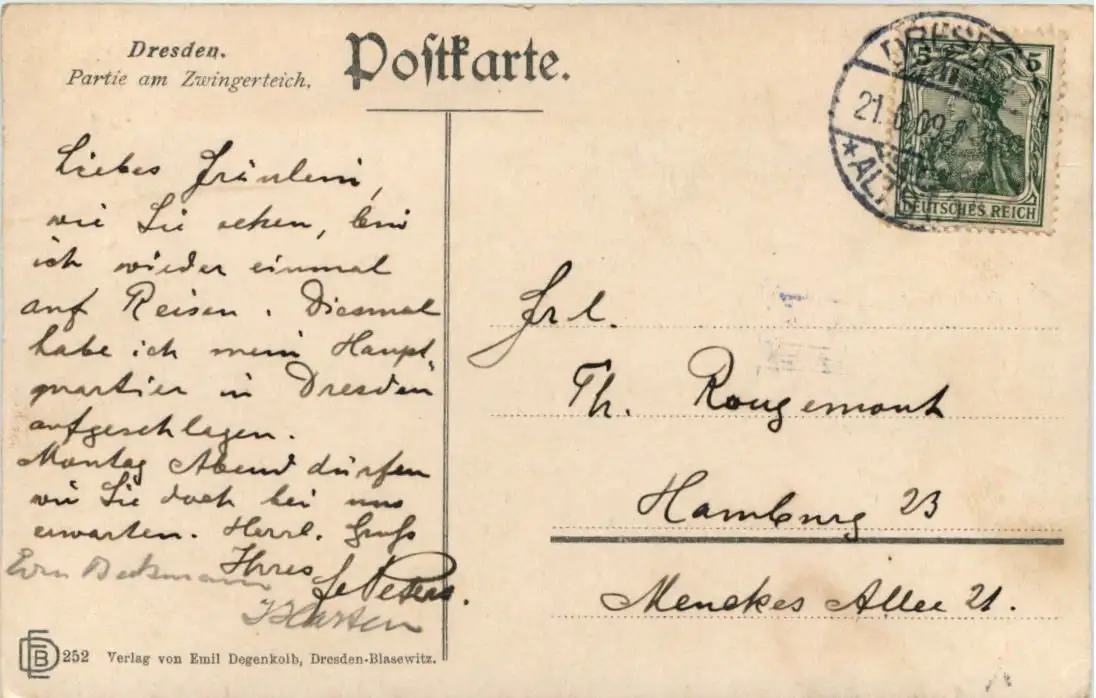 Dresden.
Partie am Zwingerteich.
Postkarte.
5 5
21.6.09
DEUTSCHES REICH
Liebes Fräulein,
wie Sie sehen, bin
ich wieder einmal
auf Reisen. Diesmal
habe ich mein Haupt-
quartier in Dresden
aufgeschlagen.
Montag Abend dürfen
wir Sie doch bei uns
erwarten. Herzl. Gruß
Ihres
Peters.
Frl.
Th. Rougemont
Hamburg 23
Menckes Allee 21.
252 Verlag von Emil Degenkolb, Dresden-Blasewitz.